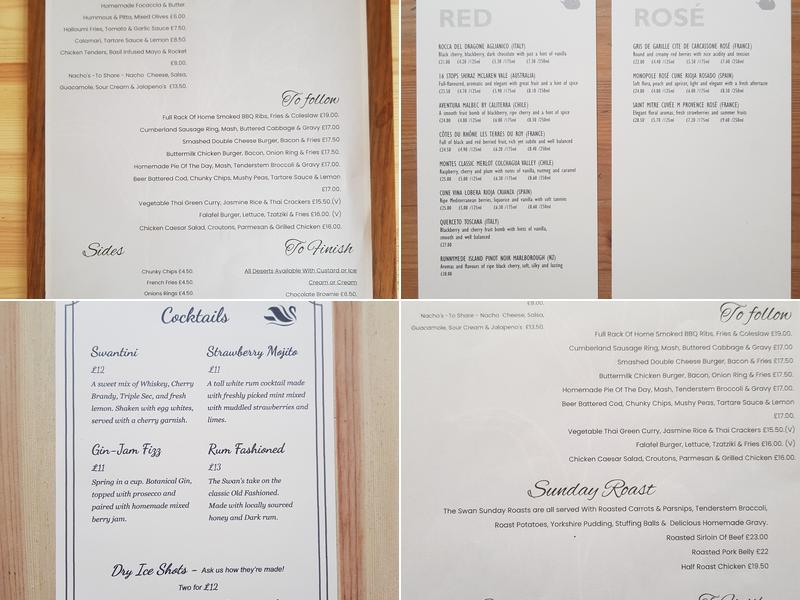 Homemade Focaccia & Butter
Hummous & Pitta, Mixed Olives £6.00
Halloumi Fries, Tomato & Garlic Sauce £7.50.
Calamari, Tartare Sauce & Lemon £8.50.
Chicken Tenders, Basil Infused Mayo & Rocket
£8.00.
Nacho's -To Share - Nacho Cheese, Salsa,
Guacamole, Sour Cream & Jalapeno's £13.50.
To follow
Full Rack Of Home Smoked BBQ Ribs, Fries & Coleslaw £19.00.
Cumberland Sausage Ring, Mash, Buttered Cabbage & Gravy £17.00
Smashed Double Cheese Burger, Bacon & Fries £17.50
Buttermilk Chicken Burger, Bacon, Onion Ring & Fries £17.50.
Homemade Pie Of The Day, Mash, Tenderstem Broccoli & Gravy £17.00.
Beer Battered Cod, Chunky Chips, Mushy Peas, Tartare Sauce & Lemon
£17.00.
Vegetable Thai Green Curry, Jasmine Rice & Thai Crackers £15.50.(V)
Falafel Burger, Lettuce, Tzatziki & Fries £16.00. (V)
Chicken Caesar Salad, Croutons, Parmesan & Grilled Chicken £16.00.
Sides
Chunky Chips £4.50.
French Fries £4.50.
Onions Rings £4.50
To Finish
All Deserts Available With Custard or Ice
Cream or Cream
Chocolate Brownie £6.50.
RED
ROCCA DEL DRAGONE AGLIANICO (ITALY)
Black cherry, blackberry, dark chocolate with just a hint of vanilla
£21.00 £4.20 /125ml £5.30 /175ml £7.30 /250ml
16 STOPS SHIRAZ MCLAREN VALE (AUSTRALIA)
Full-flavoured, aromatic and elegant with great fruit and a hint of spice
£23.50 £4.70 /125ml £5.90 /175ml £8.10 /250ml
AVENTURA MALBEC BY CALITERRA (CHILE)
A smooth fruit bomb of blackberry, ripe cherry and a hint of spice
£24.00 £4.80 /125ml £6.00 /175ml £8.30 /250ml
CÔTES DU RHÔNE LES TERRES DU ROY (FRANCE)
Full of black and red berried fruit, rich yet subtle and well balanced
£24.50 £4.90 /125ml £6.20 /175ml £8.40 /250ml
MONTES CLASSIC MERLOT COLCHAGUA VALLEY (CHILE)
Raspberry, cherry and plum with notes of vanilla, nutmeg and caramel
£25.00 £5.00 /125ml £6.30 /175ml £8.60 /250ml
CUNE VINA LOBERA RIOJA CRIANZA (SPAIN)
Ripe Mediterranean berries, liquorice and vanilla with soft tannins
£25.00 £5.00 /125ml £6.30 /175ml £8.60 /250ml
QUERCETO TOSCANA (ITALY)
Blackberry and cherry fruit bomb with hints of vanilla,
smooth and well balanced
£27.00
RUNNYMEDE ISLAND PINOT NOIR MARLBOROUGH (NZ)
Aromas and flavours of ripe black cherry, soft, silky and lasting
£30.00
ROSÉ
GRIS DE GARILLE CITE DE CARCASSONE ROSÉ (FRANCE)
Round and creamy red berries with nice acidity and tension
£22.00 £4.40 /125ml £5.50 /175ml £7.60 /250ml
MONOPOLE ROSÉ CUNE RIOJA ROSADO (SPAIN)
Soft flora, peach and apricot, light and elegant with a fresh aftertaste
£24.00 £4.80 /125ml £6.00 /175ml £8.30 /250ml
SAINT MITRE CUVÉE M PROVENCE ROSÉ (FRANCE)
Elegant floral aromas, fresh strawberries and summer fruits
£28.50 £5.70 /125ml £7.20 /175ml £9.60 /250ml
Cocktails
Swantini
£12
A sweet mix of Whiskey, Cherry
Brandy, Triple Sec, and fresh
lemon. Shaken with egg whites,
served with a cherry garnish.
Strawberry Mojito
£11
A tall white rum cocktail made
with freshly picked mint mixed
with muddled strawberries and
limes.
Gin-Jam Fizz
£11
Spring in a cup. Botanical Gin,
topped with prosecco and
paired with homemade mixed
berry jam.
Rum Fashioned
£13
The Swan's take on the
classic Old Fashioned.
Made with locally sourced
honey and Dark rum.
Dry Ice Shots - Ask us how they're made!
Two for £12
£8.00.
Nacho's -To Share - Nacho Cheese, Salsa,
Guacamole, Sour Cream & Jalapeno's £13.50.
To follow
Full Rack Of Home Smoked BBQ Ribs, Fries & Coleslaw £19.00.
Cumberland Sausage Ring, Mash, Buttered Cabbage & Gravy £17.00
Smashed Double Cheese Burger, Bacon & Fries £17.50
Buttermilk Chicken Burger, Bacon, Onion Ring & Fries £17.50.
Homemade Pie Of The Day, Mash, Tenderstem Broccoli & Gravy £17.00.
Beer Battered Cod, Chunky Chips, Mushy Peas, Tartare Sauce & Lemon
£17.00.
Vegetable Thai Green Curry, Jasmine Rice & Thai Crackers £15.50.(V)
Falafel Burger, Lettuce, Tzatziki & Fries £16.00. (V)
Chicken Caesar Salad, Croutons, Parmesan & Grilled Chicken £16.00.
Sunday Roast
The Swan Sunday Roasts are all served With Roasted Carrots & Parsnips, Tenderstem Broccoli,
Roast Potatoes, Yorkshire Pudding, Stuffing Balls & Delicious Homemade Gravy.
Roasted Sirloin Of Beef £23.00
Roasted Pork Belly £22
Half Roast Chicken £19.50